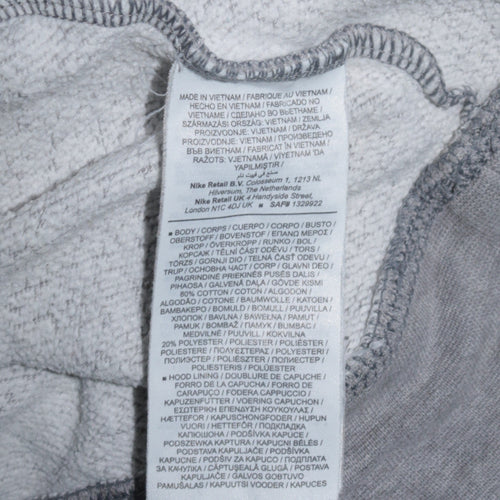 MADE IN VIETNAM / FABRIQUÉ AU VIETNAM /
HECHO EN VIETNAM / FABRICADO NO
VIETNAME / СДЕЛАНО ВО ВЬЕТНАМЕ /
SZÁRMAZÁSI ORSZÁG: VIETNAM / ZEMLJA
PROIZVODNJE: VIJETNAM / DRŽAVA
PROIZVODNJE: VIETNAM / ПРОИЗВЕДЕНО
ВЪВ ВИЕТНАМ / FABRICAT ÎN VIETNAM /
RAŽOTS: VJETNAMĀ / VIYETNAM 'DA
YAPILMIŞTIR /
صنع في فيتنام
Nike Retail B.V. Colosseum 1, 1213 NL
Hilversum, The Netherlands
Nike Retail UK 4 Handyside Street,
London N1C 4DJ UK ● SAF# 1329922
■ BODY / CORPS / CUERPO / CORPO / BUSTO /
OBERSTOFF / BOVENSTOF / ΕΠΑΝΩ ΜΕΡΟΣ /
KROP / ÖVERKROPP / RUNKO / BOL /
КОРСАЖ / TĚLNÍ ČÁST ODĚVU / TORS /
TÖRZS / GORNJI DIO / TELNA ČASŤ ODEVU /
TRUP / ОСНОВНА ЧАСТ / CORP / GLAVNI DEO /
PRIEKINĖS APRANGOS PUSĖS DALIS /
PIHAOSA / GALVENĀ DAĻA / GÖVDE KISMI
80% COTTON / COTON / ALGODÓN /
ALGODÃO / COTONE / BAUMWOLLE / KATOEN /
ΒΑΜΒΑΚΕΡΟ / BOMULD / BOMULL / PUUVILLA /
ХЛОПОК / BAVLNA / BAWEŁNA / PAMUT /
PAMUK / BOMBAŽ / ПАМУК / BUMBAC /
MEDVILNĖ / PUUVILL / KOKVILNA
20% POLYESTER / POLYESTER / POLIÉSTER /
POLIÉSTERE / POLIESTERE / POLYESTERI /
ПОЛИЭСТЕР / POLIESZTER / ПОЛИЕСТЕР /
POLIESTERIS / POLÜESTER
■ HOOD LINING / DOUBLURE DE CAPUCHE /
FORRO DE LA CAPUCHA / FORRO DE
CARAPUÇO / FODERA CAPPUCCIO /
KAPUZENFUTTER / VOERING CAPUCHON /
ΕΣΩΤΕΡΙΚΗ ΕΠΕΝΔΥΣΗ ΚΟΥΚΟΥΛΑΣ /
HÆTTEFOR / KAPUSCHONGFODER / HUPUN
VUORI / HETTEFÔR / ПОДКЛАДКА
КАПЮШОНА / PODŠÍVKA KAPUCE /
PODSZEWKA KAPTURA / KAPUCNI BÉLÉS /
PODSTAVA KAPULJAČE / PODŠÍVKA
KAPUCNE / PODLOŽENA KAPUCA / ПОДПЛАТА
ЗА КАЧУЛКА / CĂPTUȘEALĂ GLUGĂ / POSTAVA
KAPULJAČE / GOBTUVO PAMUŠALAS /